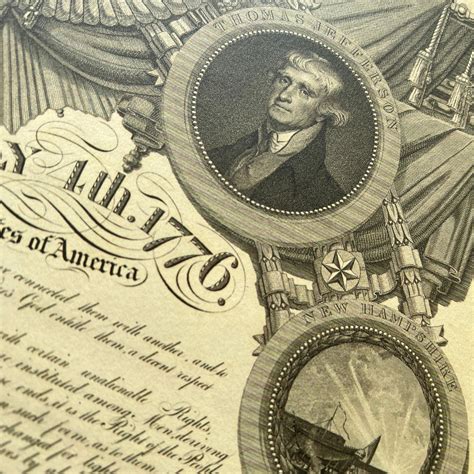 THOMAS JEFFERSON
Y 4th. 1776.
tes of America
connected them with another, and
God entitle them, a decent respect
with certain unalienable Rights
instituted among Men, deriving
ends, it is the Right of the People
such form, as to them
changed for light
NEW HAMPSHIRE